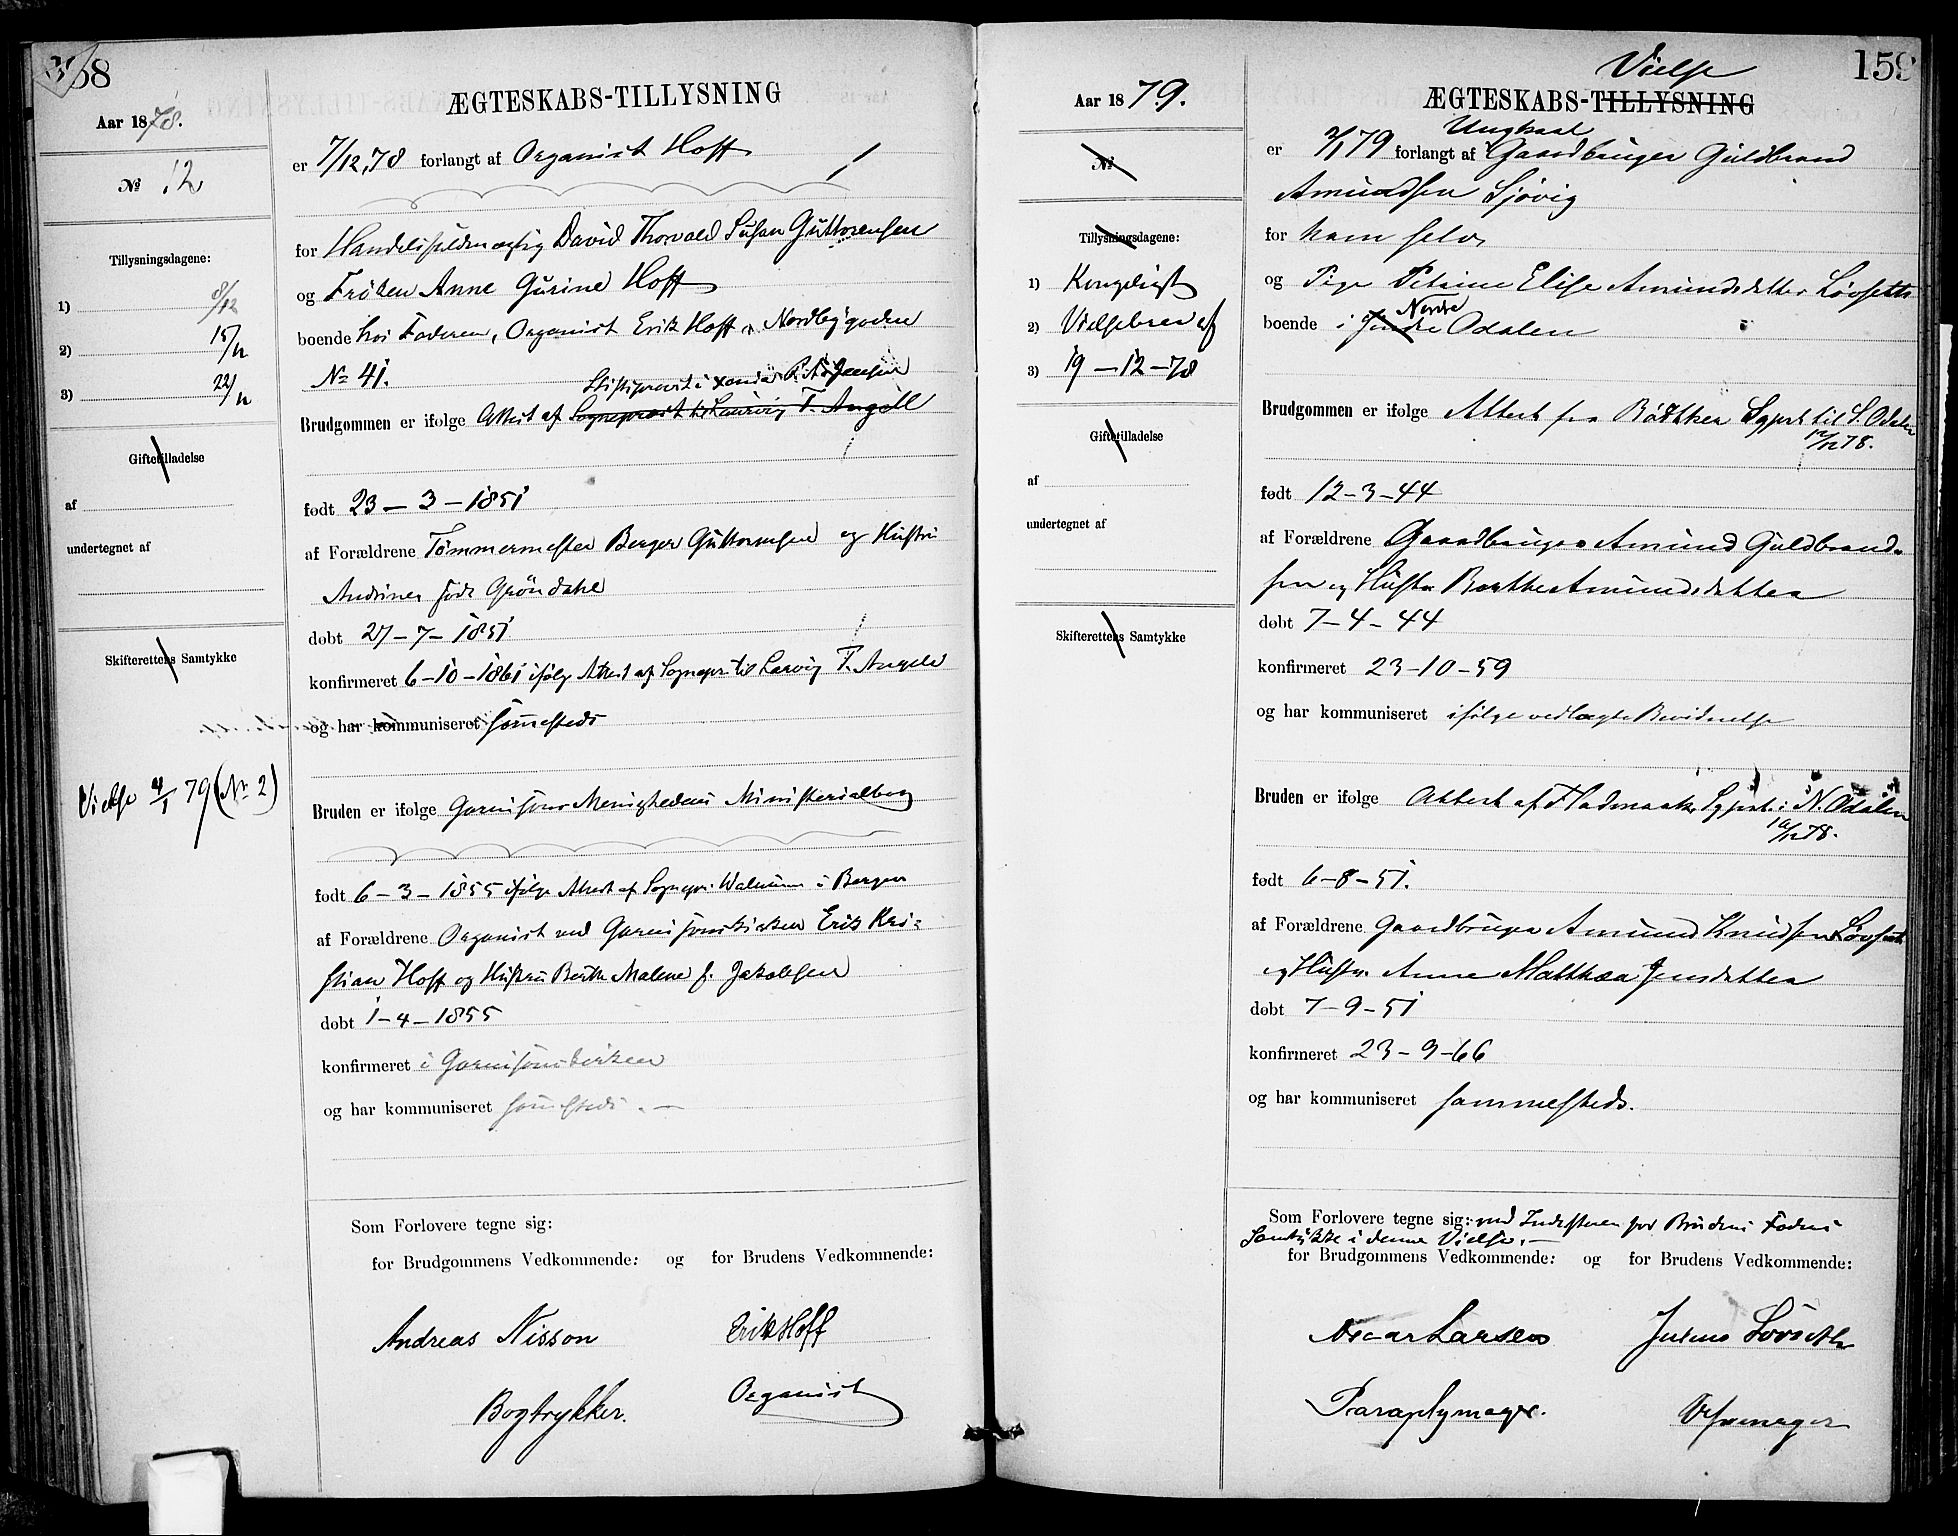 158
Aar 1878.
№ 12
Tillysningsdagene:
1) 8/12
2) 15/12
3) 22/12
Giftetilladelse
af
undertegnet af
Skifterettens Samtykke
Vielse 4/1 79 (№ 2)
ÆGTESKABS-TILLYSNING
er 7/12,78 forlangt af Organist Hoff
for Handelsfuldmægtig David Thorvald Guttormsen
og Frøken Anne Gurine Hoff
boende hos Faderen, Organist Erik Hoff, Nordbygaden
№ 41.
Stiftsprovst i Jensen
Brudgommen er ifølge Attest af Sogneprest til Laurvig T. Angell
født 23 - 3 - 1851
af Forældrene Tømmermester Berger Guttormsen og Hustru
Andrine født Gröndahl
døbt 27 - 7 - 1851
konfirmeret 6-10-1861 ifølge Attest af Sognepr. til Larvig T. Angell
og har kommuniseret sammesteds
Bruden er ifølge Garnisons Menighedens Ministerialbog
født 6 - 3 - 1855 ifølge Attest af Sognepr. Walnum i Bergen
af Forældrene Organist ved Garnisonskirken Erik Kri-
stian Hoff og Hustru Berthe Malene f. Jakobsen
døbt 1-4-1855
konfirmeret i Garnisonskirken
og har kommuniseret sammesteds. —
Som Forlovere tegne sig:
for Brudgommens Vedkommende: og for Brudens Vedkommende:
Andreas Nisson Erik Hoff
Bogtrykker. Organist
159
Aar 1879.
№
Tillysningsdagene:
1) Kongeligt
2) Vielsebrev af
3) 19-12-78
Giftetilladelse
af
undertegnet af
Skifterettens Samtykke
Vielse
ÆGTESKABS-TILLYSNING
Ungkarl
er 3/1 79 forlangt af Gaardbruger Guldbrand
Amundsen Sjøvig
for ham selv
og Pige Petrine Elise Amundsdatter Løvseth
Nordre
boende i Søndre Odalen
Brudgommen er ifølge Attest fra Sgprst til S. Odalen
12/12 78.
født 12-3-44
af Forældrene Gaardbruger Amund Guldbrand-
sen og Hustru Berthe Amundsdatter
døbt 7-4-44
konfirmeret 23-10-59
og har kommuniseret ifølge vedlagte Bevidnelse
Bruden er ifølge Attest af Fladmark, Sgprst. i N. Odalen
19/12 78.
født 6-8-51.
af Forældrene Gaardbruger Amund Knudsen Løvseth
og Hustru Anne Matthea Jensdatter
døbt 7-9-51
konfirmeret 23-9-66
og har kommuniseret sammesteds.
Som Forlovere tegne sig: med Indestaaen for Brudens Faders
Samtykke i denne Vielse. —
for Brudgommens Vedkommende: og for Brudens Vedkommende:
Oscar Larsen Julius Løvseth
Paraplymager. Uhrmager